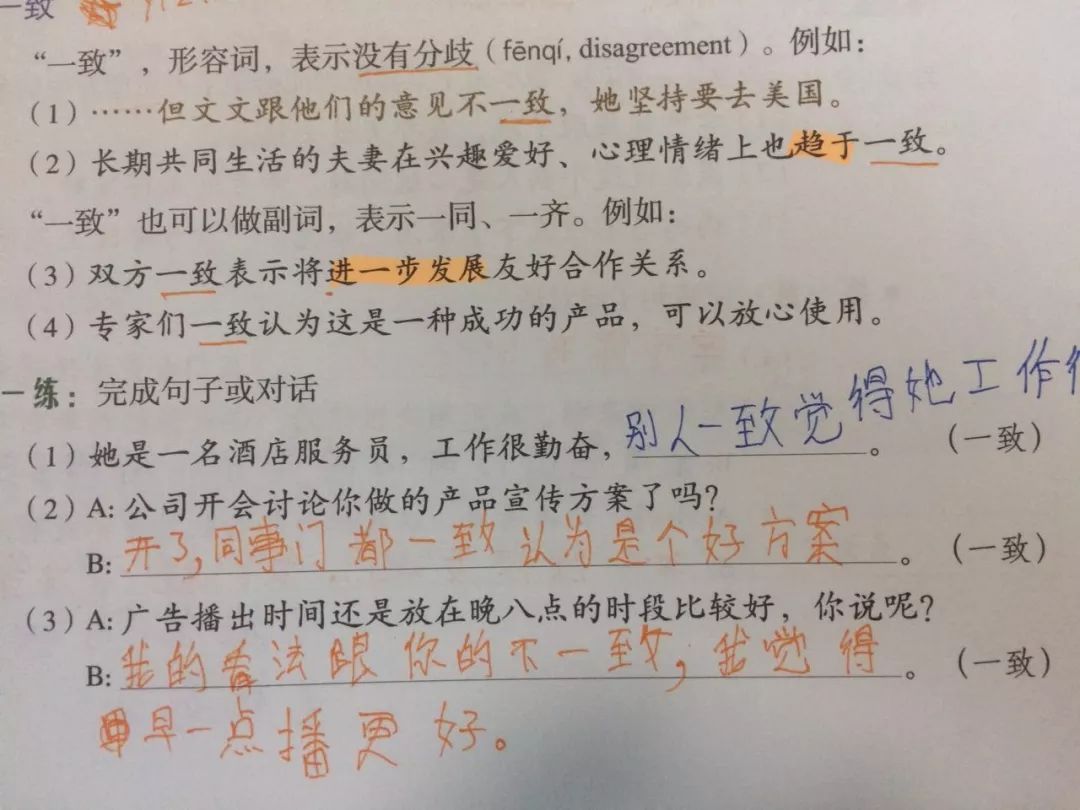 一致
“一致”，形容词，表示没有分歧（fēnqí, disagreement）。例如：
（1）……但文文跟他们的意见不一致，她坚持要去美国。
（2）长期共同生活的夫妻在兴趣爱好、心理情绪上也趋于一致。
“一致”也可以做副词，表示一同、一齐。例如：
（3）双方一致表示将进一步发展友好合作关系。
（4）专家们一致认为这是一种成功的产品，可以放心使用。
一练：完成句子或对话
（1）她是一名酒店服务员，工作很勤奋，别人一致觉得她工作很。（一致）
（2）A: 公司开会讨论你做的产品宣传方案了吗？
B: 开了，同事门都一致认为是个好方案。（一致）
（3）A: 广告播出时间还是放在晚八点的时段比较好，你说呢？
B: 我的看法跟你的不一致，我觉得。（一致）
早一点播更好。